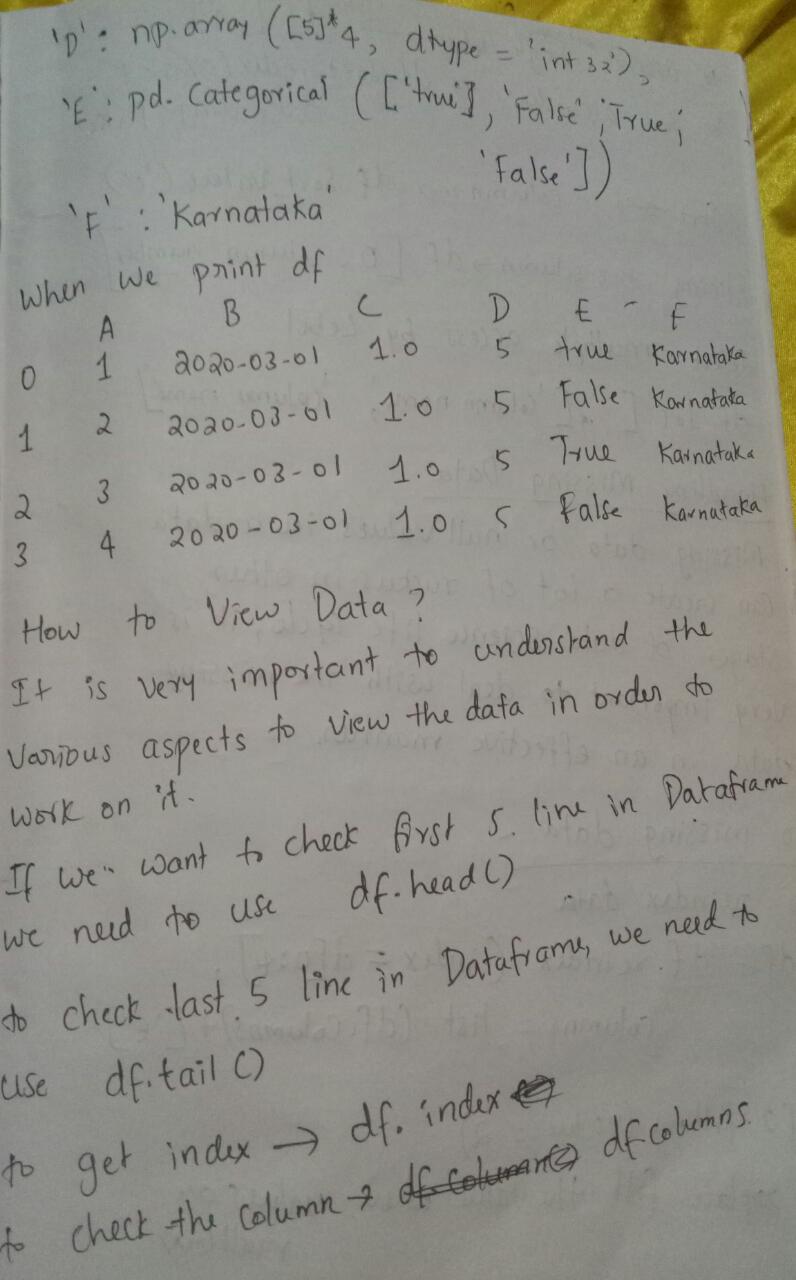 'D' : np.array ([5]*4, dtype = 'int 32'),
'E' : pd. Categorical (['true'], 'False', 'True',
'False'])
'F' : 'Karnataka'
When we print df
A B C D E - F
0 1 2020-03-01 1.0 5 true Karnataka
1 2 2020-03-01 1.0 5 False Karnataka
2 3 2020-03-01 1.0 5 True Karnataka
3 4 2020-03-01 1.0 5 False Karnataka
How to View Data ?
It is very important to understand the
Various aspects to view the data in order to
work on it.
If we want to check first 5. line in Dataframe
we need to use df.head()
to check last 5 line in Dataframe, we need to
use df.tail()
to get index → df. index
to check the column → df columns.